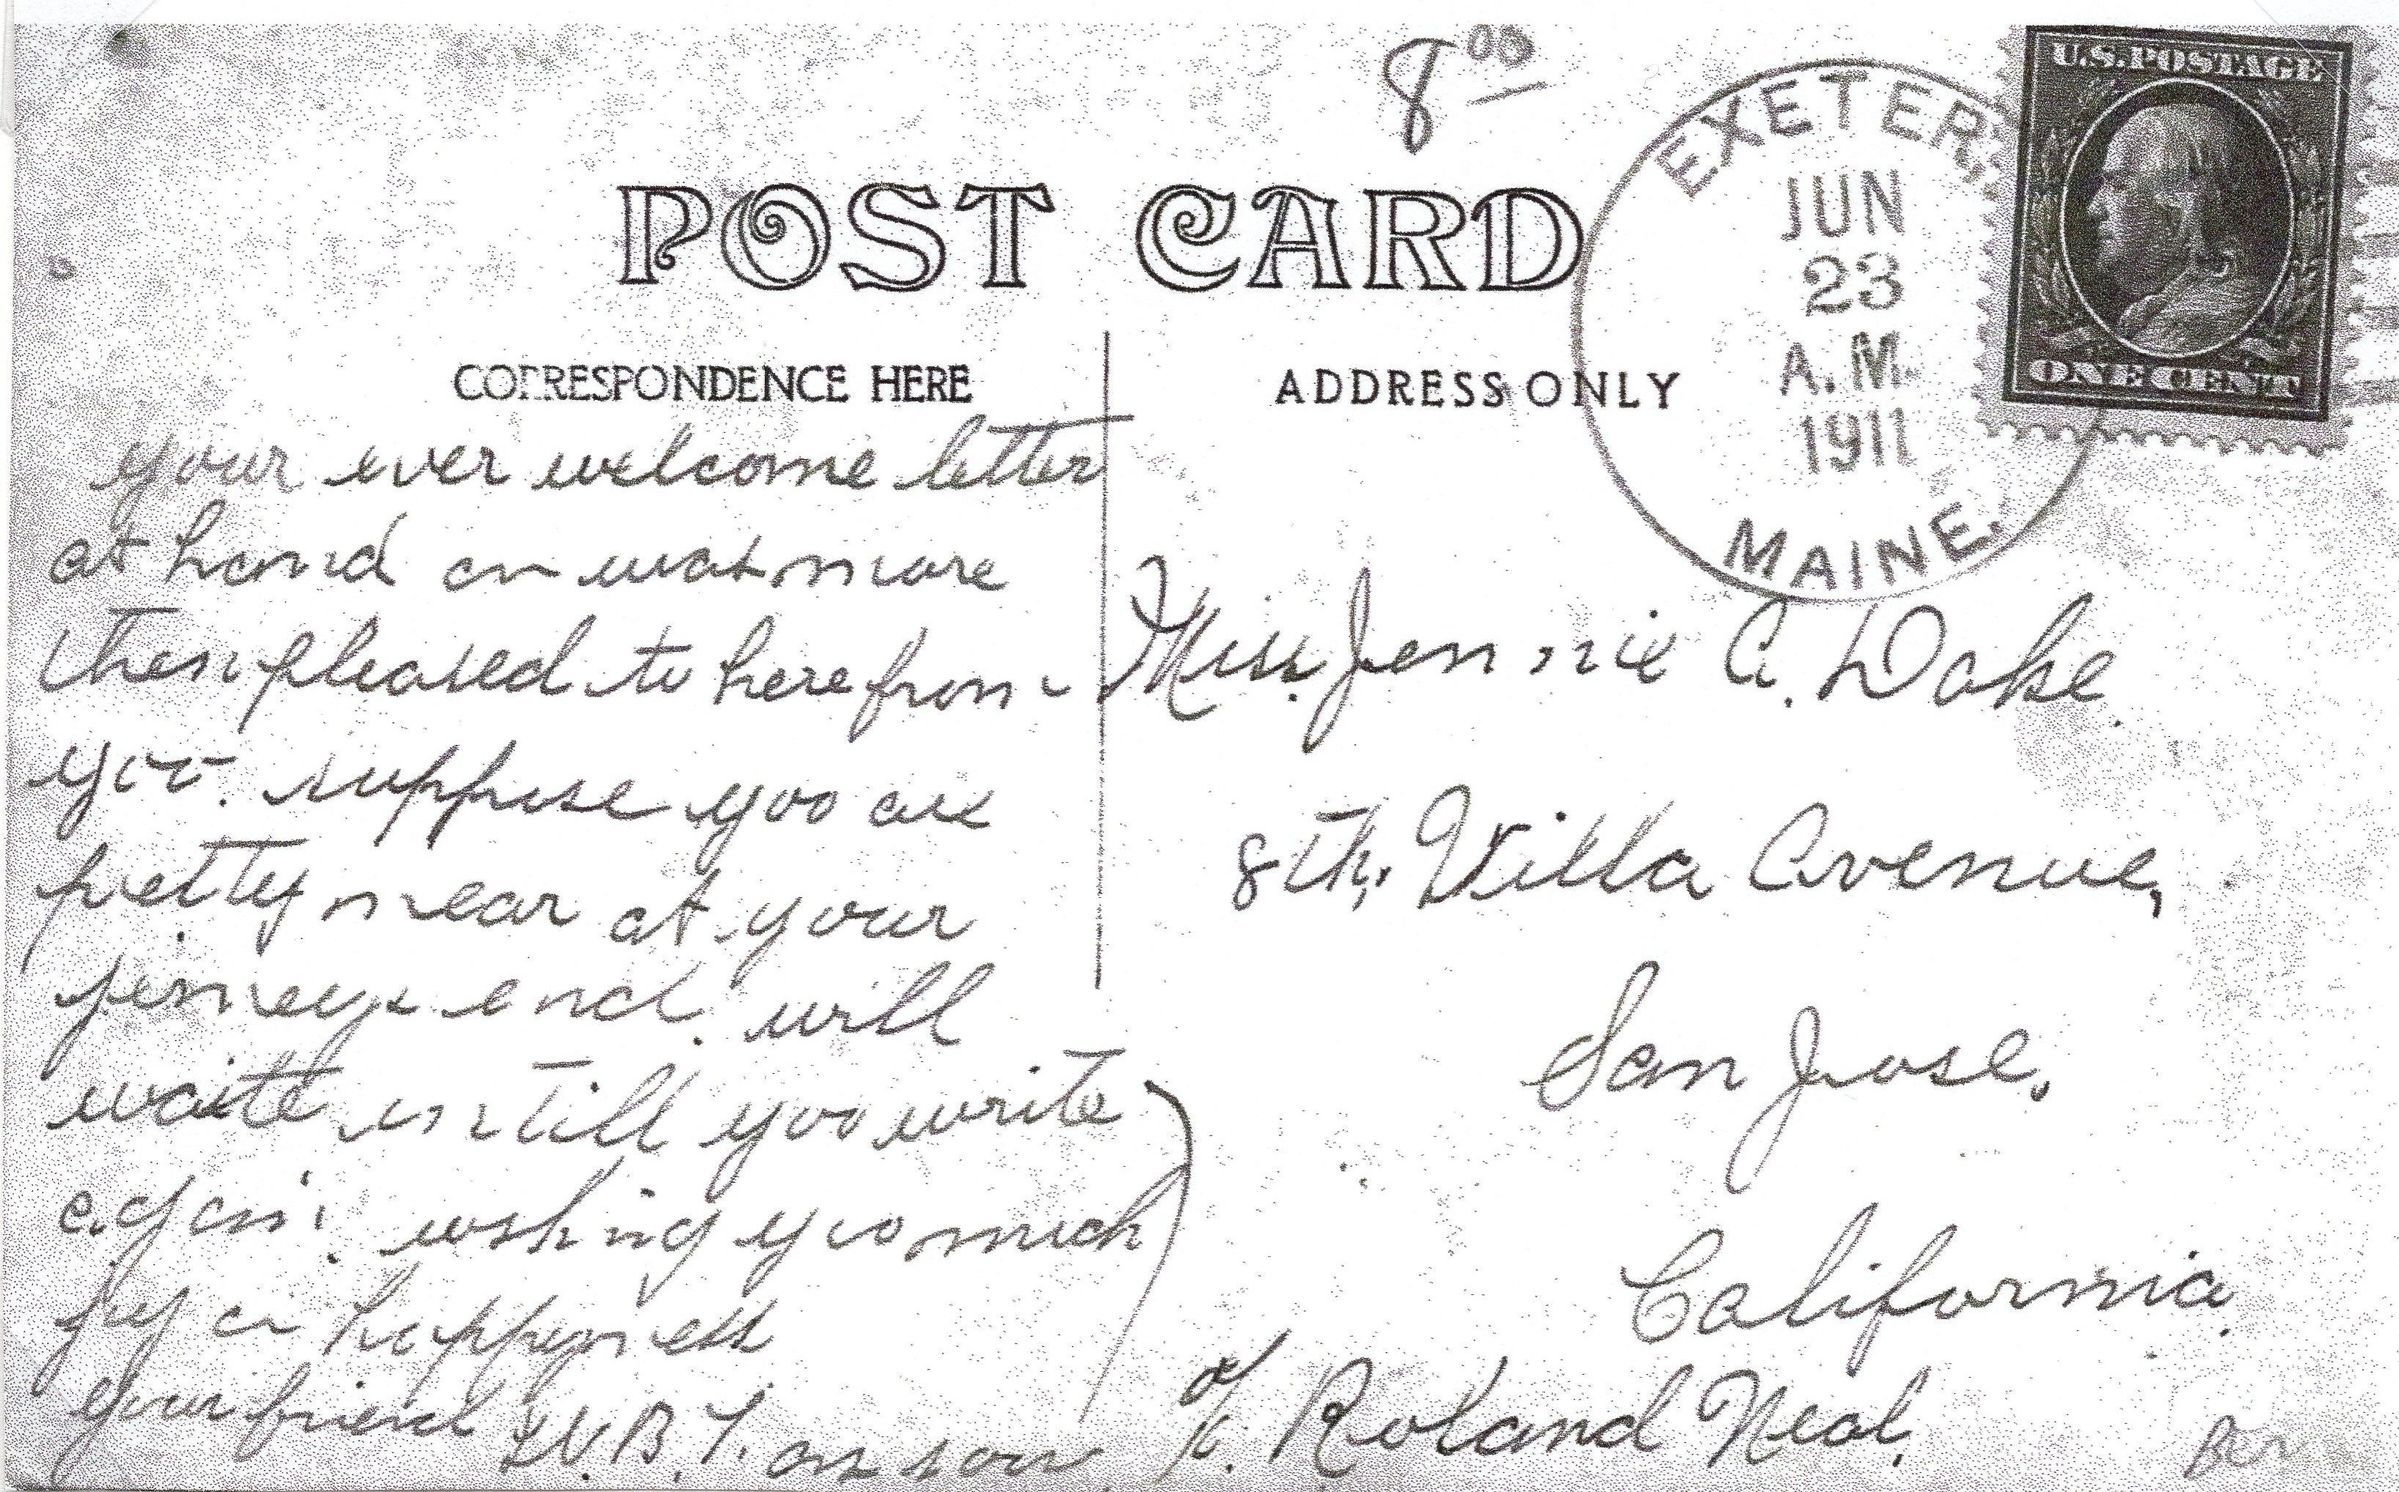 8 00
POST CARD
EXETER,
JUN
23
A.M.
1911
MAINE.
U.S. POSTAGE
ONE CENT
CORRESPONDENCE HERE
ADDRESS ONLY
your ever welcome letter
at hand an was more
then pleased to here from
yoo. suppose yoo are
pretty near at your
jerneys end. will
waite untill yoo write
agan. wshing yoo much
joy an happyness
your friend W.B.T.
Miss. Jennie A. Dake.
8th, Villa Avenue,
San Jose,
California.
c/o. Roland Neal.